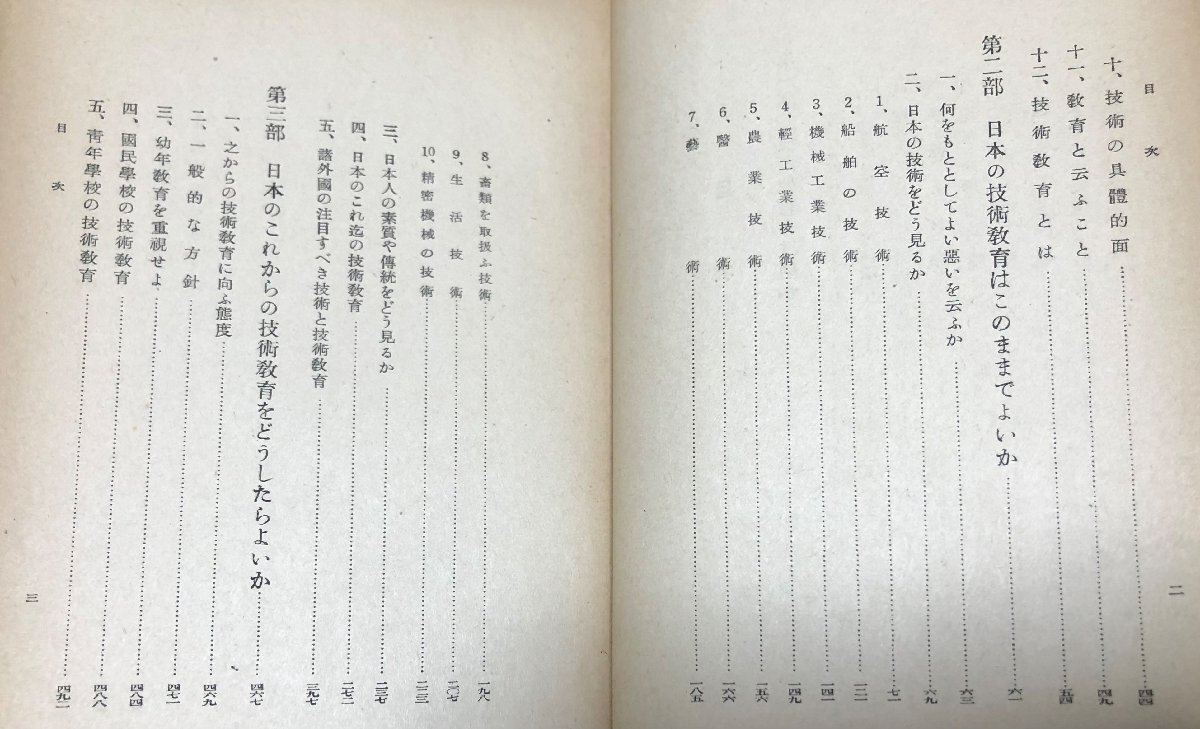 目次
十、技術の具體的面……四四
十一、敎育と云ふこと……四九
十二、技術敎育とは……五四
第二部 日本の技術敎育はこのままでよいか……六一
一、何をもととしてよい惡いを云ふか……六三
二、日本の技術をどう見るか……六九
1、航空技術……七一
2、船舶の技術……一二一
3、機械工業技術……一四一
4、輕工業技術……一四九
5、農業技術……一五六
6、醫術……一六六
7、藝術……一八五
二
8、畜類を取扱ふ技術……一九八
9、生活技術……二〇七
10、精密機械の技術……二三三
三、日本人の素質や傳統をどう見るか……二三七
四、日本のこれ迄の技術敎育……二七二
五、諸外國の注目すべき技術と技術敎育……三九七
第三部 日本のこれからの技術敎育をどうしたらよいか……四六七
一、之からの技術敎育に向ふ態度……四六九
二、一般的な方針……四七一
三、幼年敎育を重視せよ……四八四
四、國民學校の技術敎育……四八八
五、靑年學校の技術敎育……四九二
目次
三